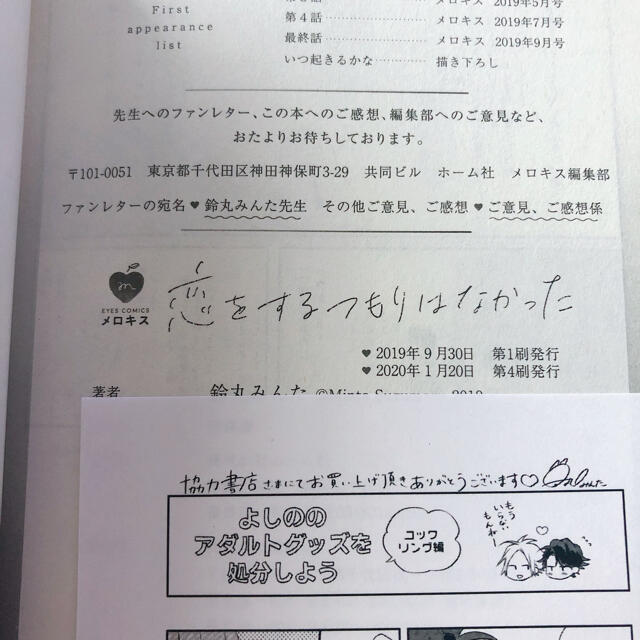 First
appearance
list
メロキス 2019年5月号
第4話 メロキス 2019年7月号
最終話 メロキス 2019年9月号
いつ起きるかな 描き下ろし
先生へのファンレター、この本へのご感想、編集部へのご意見など、
おたよりお待ちしております。
〒101-0051 東京都千代田区神田神保町3-29 共同ビル ホーム社 メロキス編集部
ファンレターの宛名♥鈴丸みんた先生 その他ご意見、ご感想♥ご意見、ご感想係
m
EYES COMICS
メロキス
恋をするつもりはなかった
♥2019年9月30日 第1刷発行
♥2020年1月20日 第4刷発行
著者 鈴丸みんた
協力書店さまにてお買い上げ頂きありがとうございます♡
よしのの
アダルトグッズを
処分しよう
コック
リング編
もう
いらない
もんねー